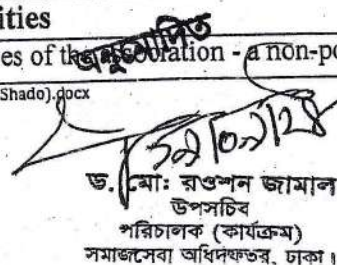 ities
es of the association - a non-po
অনুমোদিত
Shado).docx
ড. মোঃ রওশন জামাল
উপসচিব
পরিচালক (কার্যক্রম)
সমাজসেবা অধিদফতর, ঢাকা।